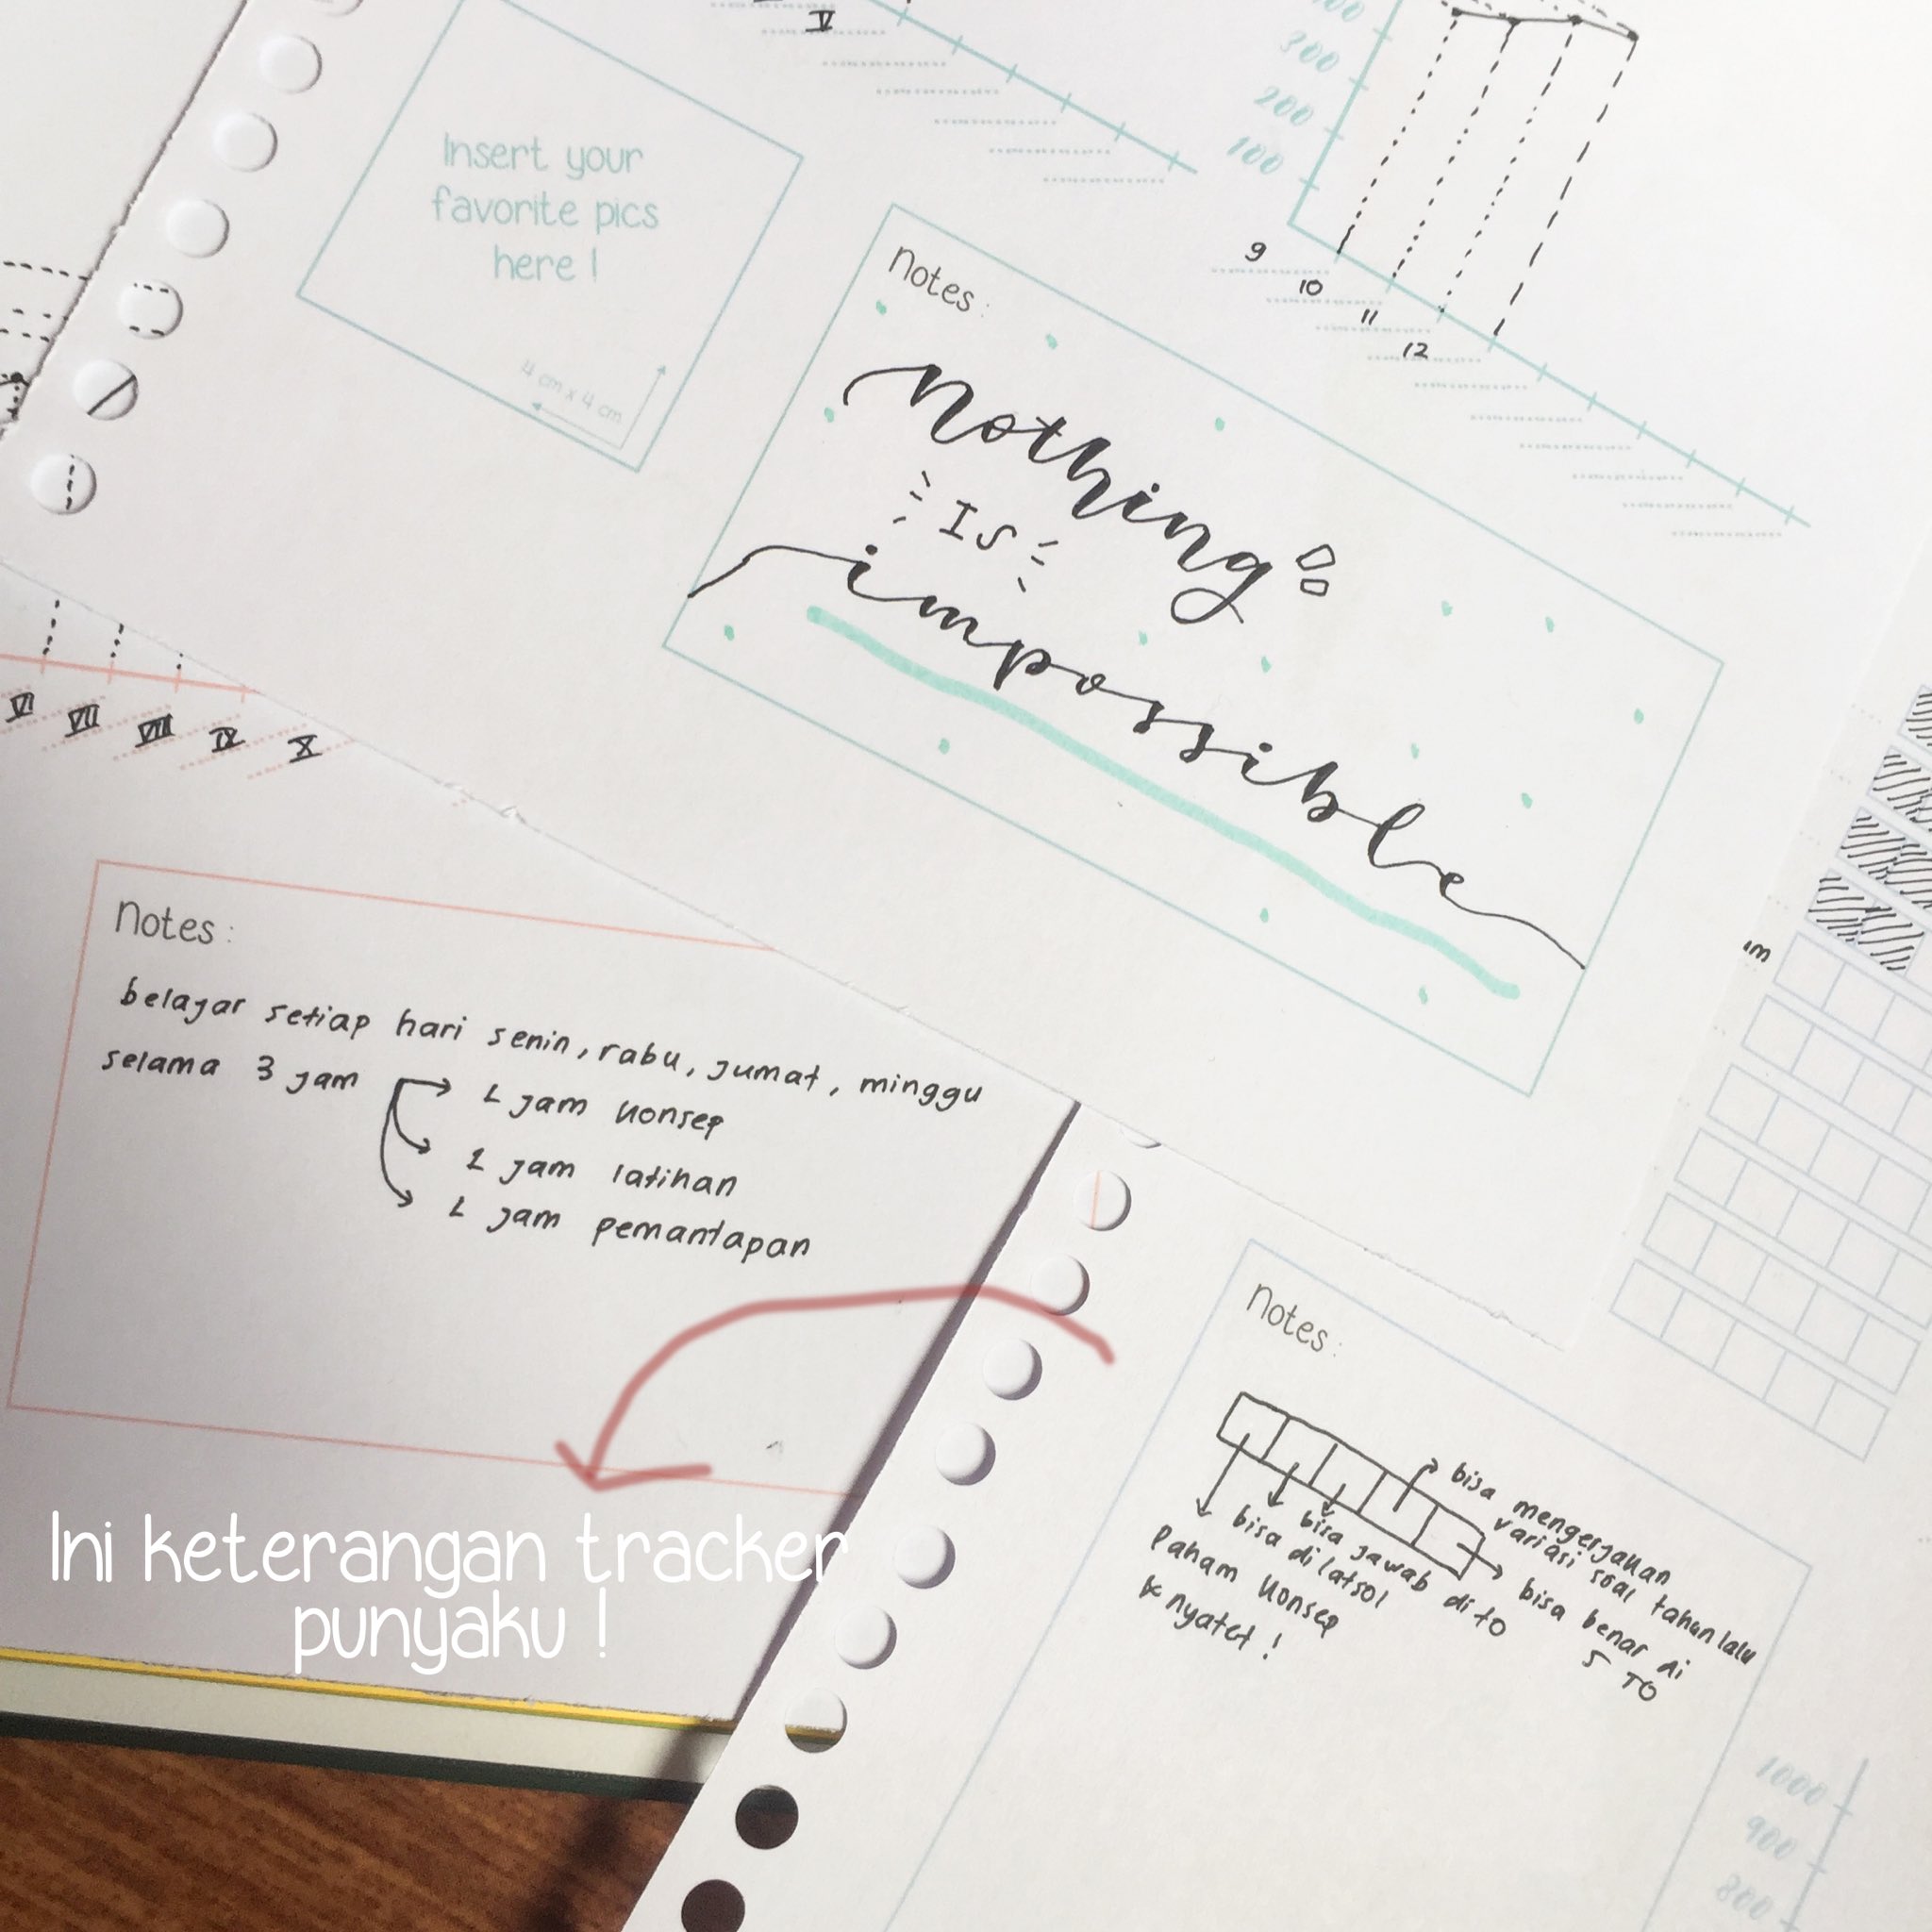 V
300
200
100
9
10
11
12
Insert your
favorite pics
here !
4 cm x 4 cm
notes :
nothing
Is
impossible
VI
VII
VIII
IX
X
notes :
belajar setiap hari senin, rabu, jumat, minggu
selama 3 jam
1 jam konsep
1 jam latihan
1 jam pemantapan
Ini keterangan tracker
punyaku !
notes :
bisa mengerjakan
variasi soal tahun lalu
bisa benar di
5 TO
bisa jawab di to
bisa di latsol
Paham konsep
& nyatet !
1000
900
800